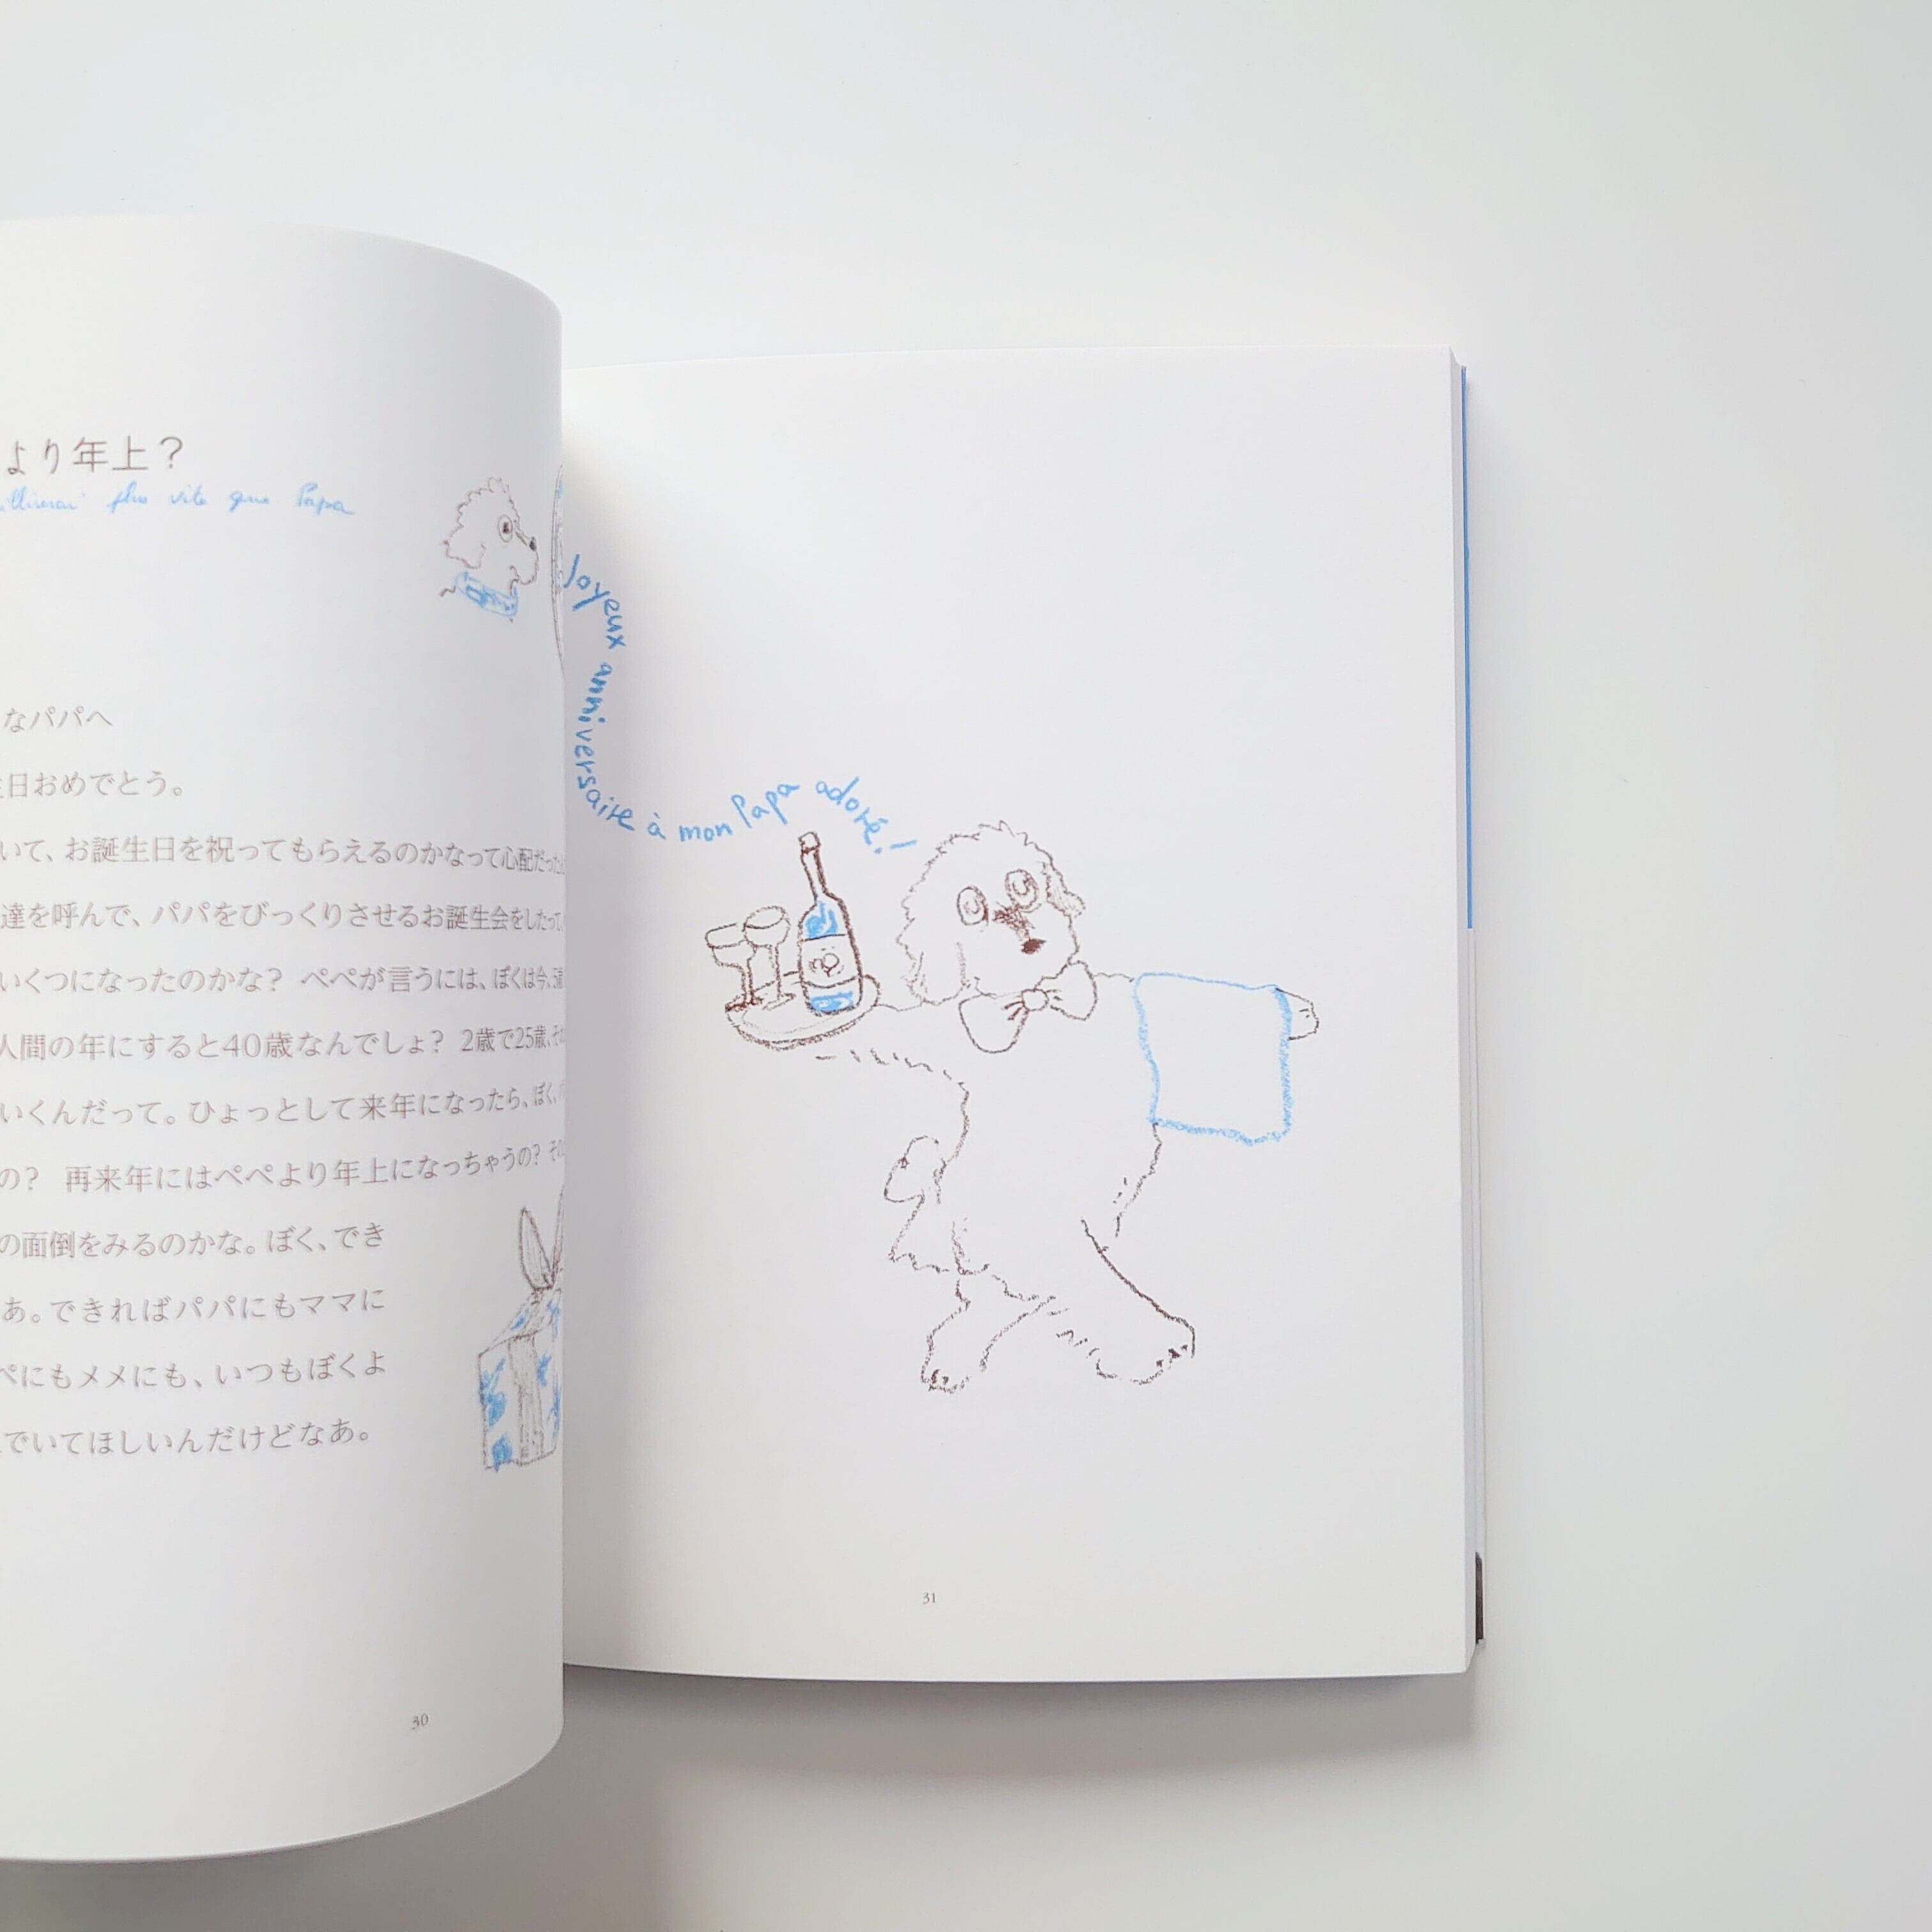 より年上？
plus vite que Papa
なパパへ
日おめでとう。
いて、お誕生日を祝ってもらえるのかなって心配だった
達を呼んで、パパをびっくりさせるお誕生会をしたって
いくつになったのかな？ ペペが言うには、ぼくは今、5歳
人間の年にすると40歳なんでしょ？ 2歳で25歳、
いくんだって。ひょっとして来年になったら、ぼく、
の？ 再来年にはペペより年上になっちゃうの？
の面倒をみるのかな。ぼく、でき
あ。できればパパにもママに
ペにもメメにも、いつもぼくよ
でいてほしいんだけどなあ。
30
Joyeux anniversaire à mon Papa adoré!
31